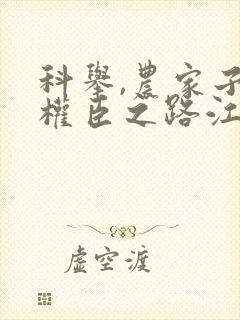 科舉,農家子
權臣之路江
虛空渡